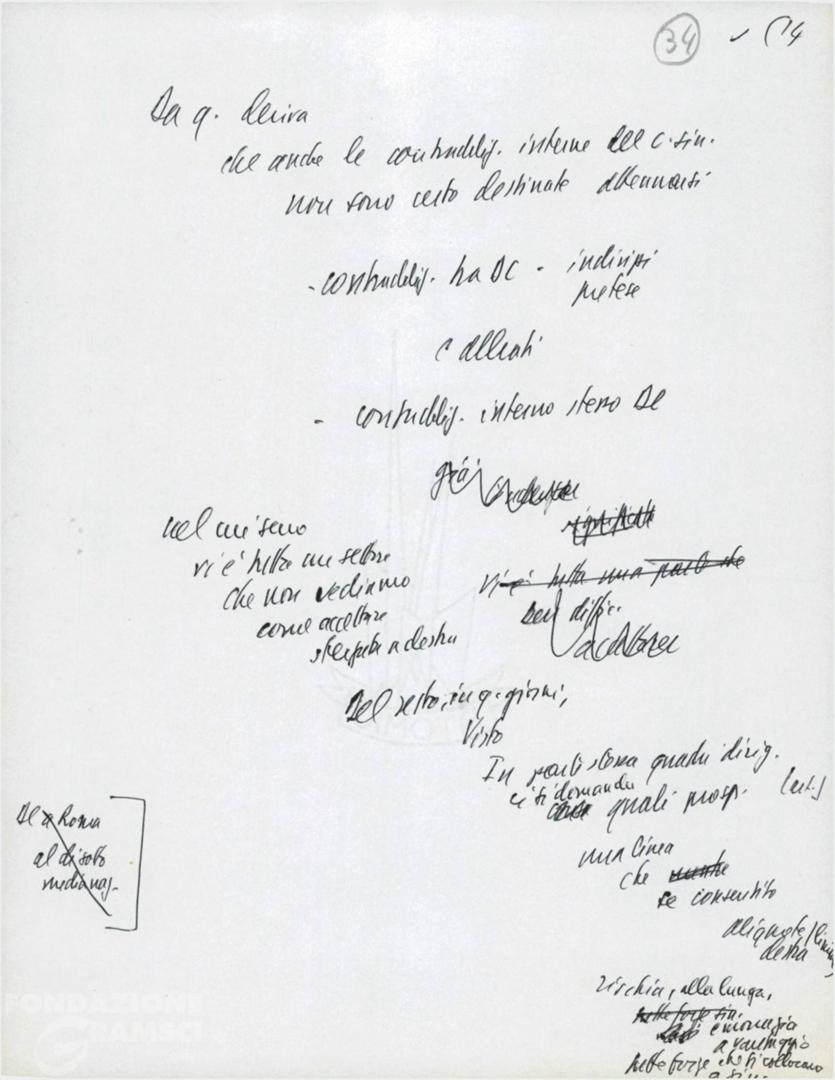 34
14
Da q. deriva
che anche le contraddiz. interne del c. sin.
non sono certo destinate attenuarsi
- contraddiz. tra DC - indirizzi
pretese
e alleati
- contraddiz. interno stesso DC
già
nel cui seno
vi è tutto un settore
che non vediamo
come accettare
sterzata a destra
vi è tutta una parte che
ben diffic.
accettare
Del resto, in q. giorni,
visto
In parti stessa quadri dirig.
ci si domanda
quali prosp.
una linea
che
se consentito
aliquote
destra
DC a Roma
al di sotto
media naz.
rischia, alla lunga,
tutte forze sin.
emorragia
a vantaggio
tutte forze che si collocano
a sin.
FONDAZIONE
GRAMSCI